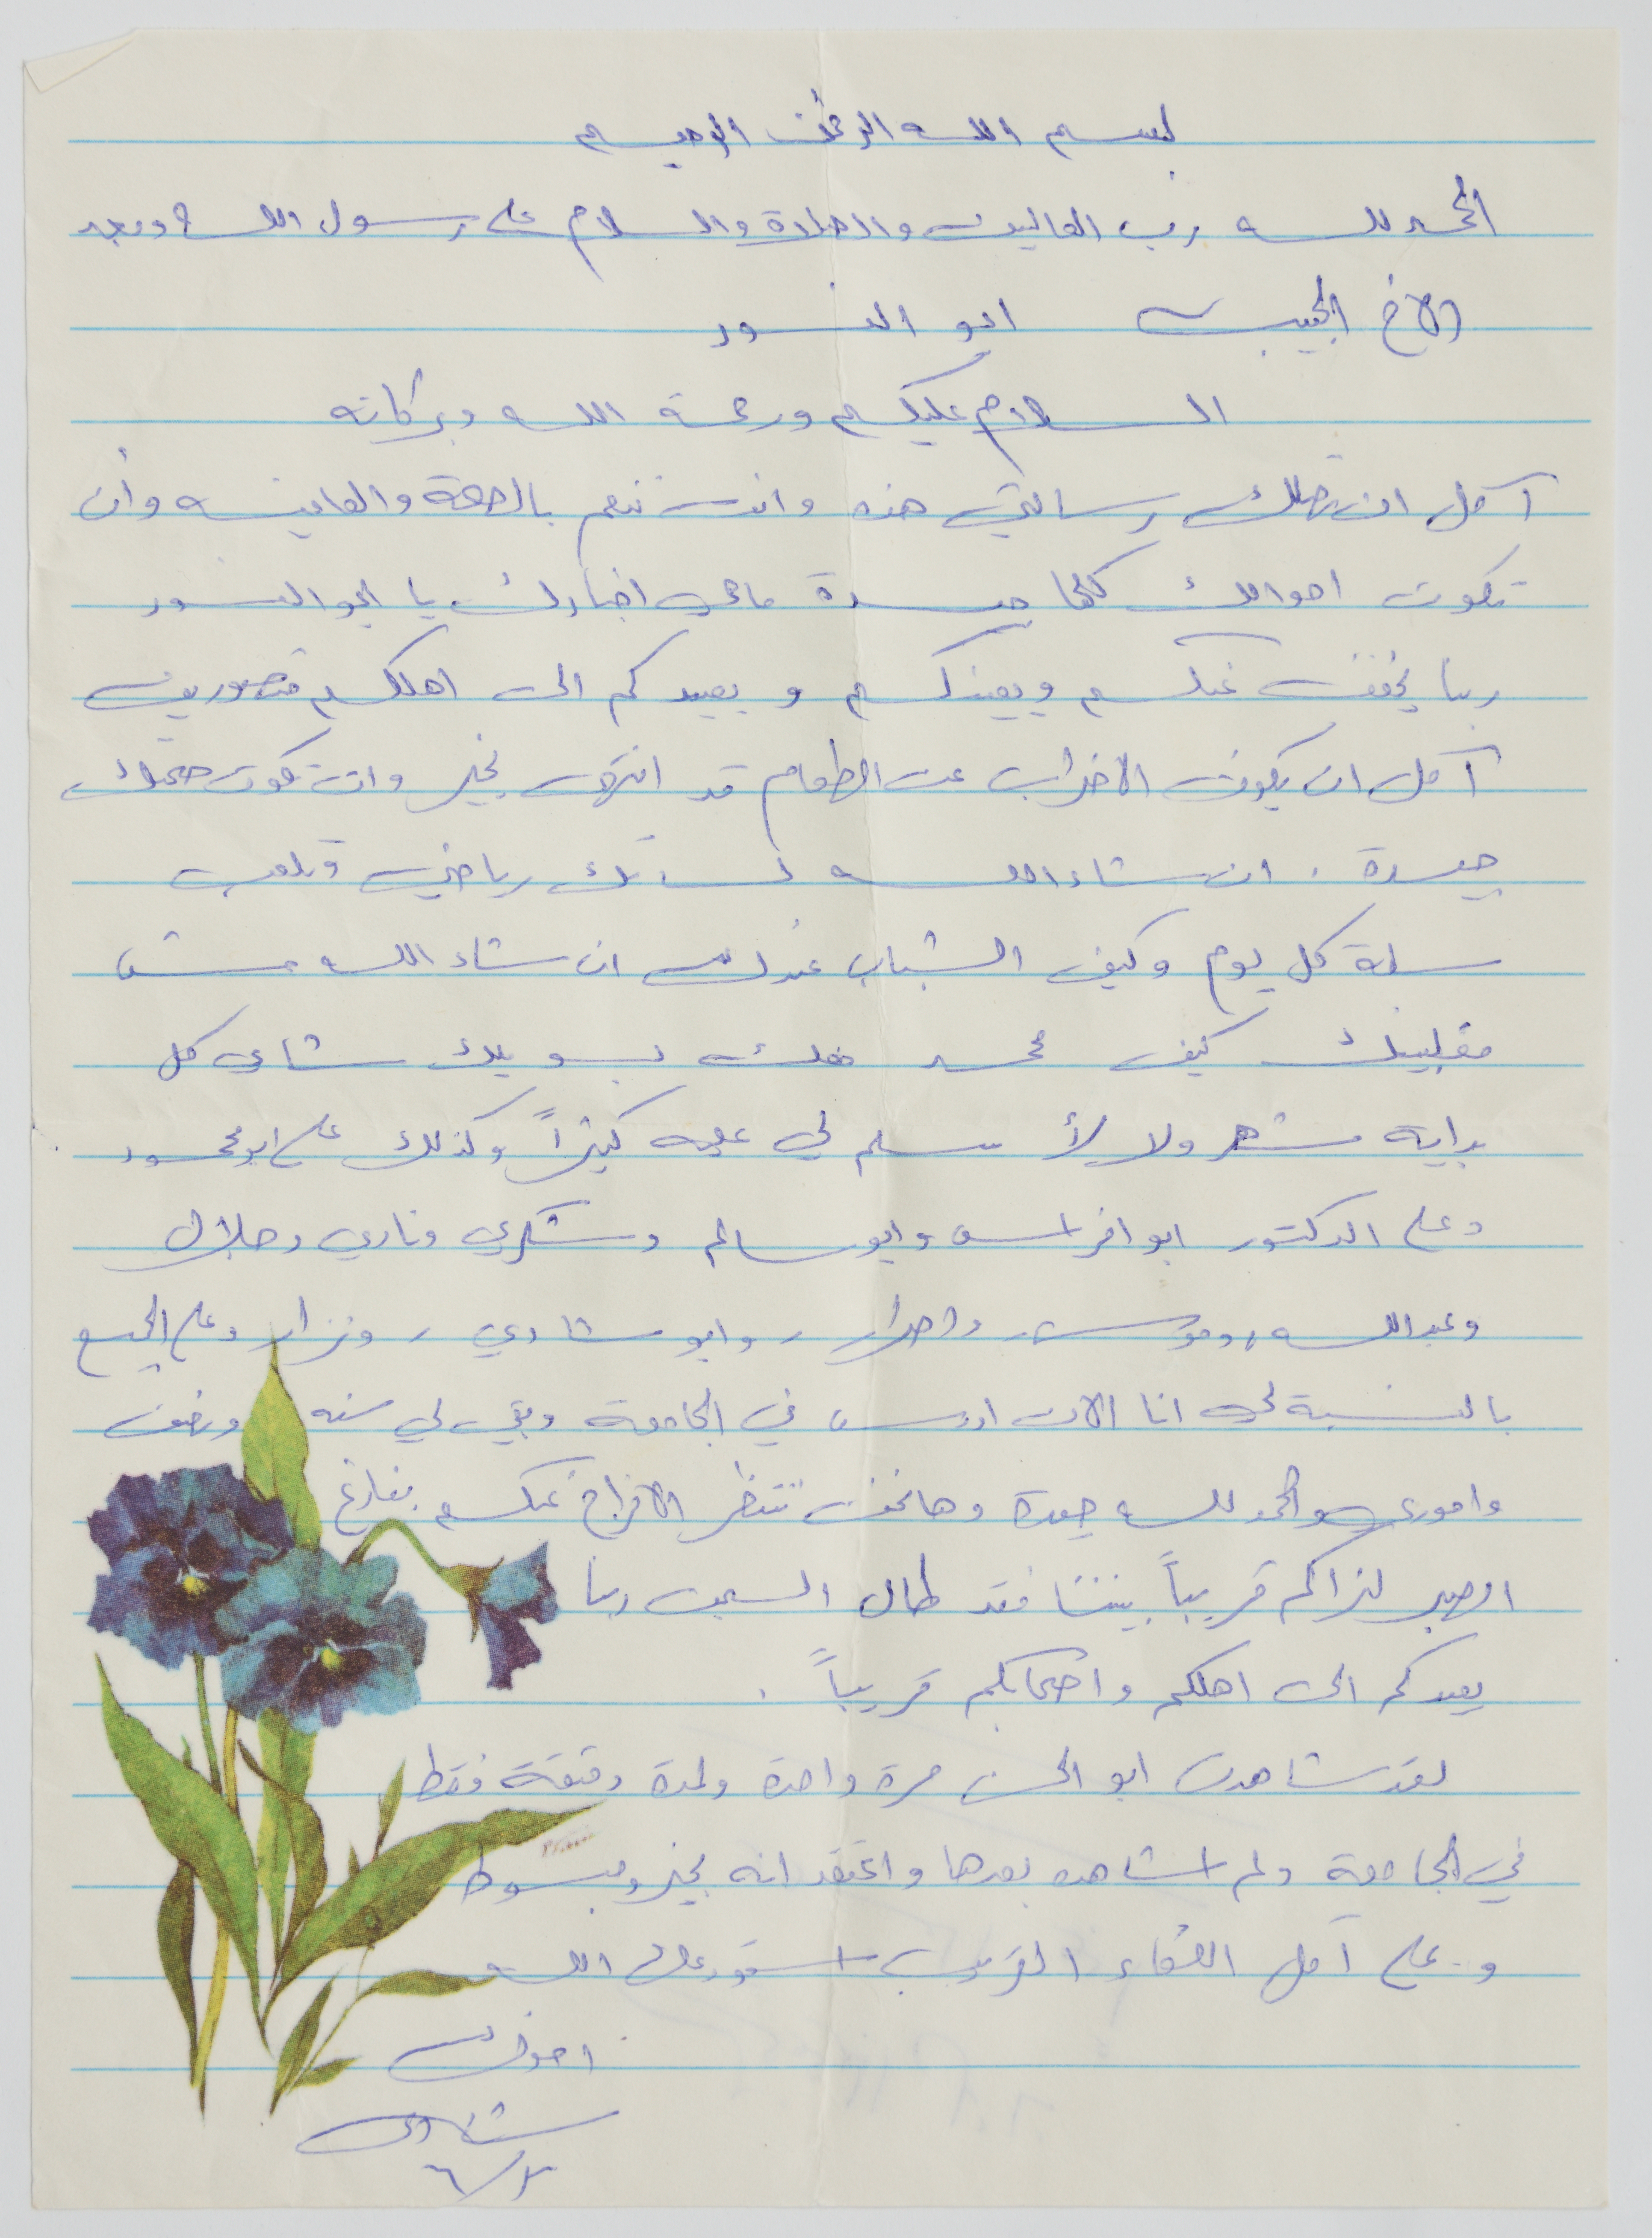 بسم الله الرحمن الرحيم
الحمد لله رب العالمين والصلاة والسلام على رسول الله وبعد
الاخ الحبيب ابو النسور
السلام عليكم ورحمة الله وبركاته
آمل ان تصلك رسالتي هذه وانت تنعم بالصحة والعافيه وأن
تكون احوالك كلها جيدة ماهي اخبارك يا ابو النسور
ربنا يخفف عنكم ويعينكم و يعيدكم الى اهلكم منصورين
آمل ان يكون الاضراب عن الطعام قد انتهى بخير وان تكون صحتك
جيدة . ان شاء الله لساتك رياضي وتلعب
سلة كل يوم وكيف الشباب عندك ان شاء الله مش
مغلبينك كيف محمد بسويلك شاي كل
بداية شهر ولا لأ سلم لي عليه كثيراً وكذلك على ابو محمود
وعلى الدكتور ابو افراس وابو سالم وشكري وفادي وجلال
وعبد الله، وموسى، وابو شادي، ونزار وعلى الجميع
بالنسبة لي انا الان ادرس في الجامعة وبقي لي سنه ونصف
واموري والحمد لله جيدة وها نحن ننتظر الافراج عنكم بفارغ
الصبر لنراكم قريباً بيننا فقد طال السجن ربنا
يعيدكم الى اهلكم واصحابكم قريباً .
لقد شاهدت ابو الحسن مرة واحدة ولمدة دقيقة فقط
في الجامعة ولم اشاهده بعدها واعتقد انه بخير ومبسوط
و.. على آمل اللقاء القريب استودعك الله
اخوك
شادي
٦/٢